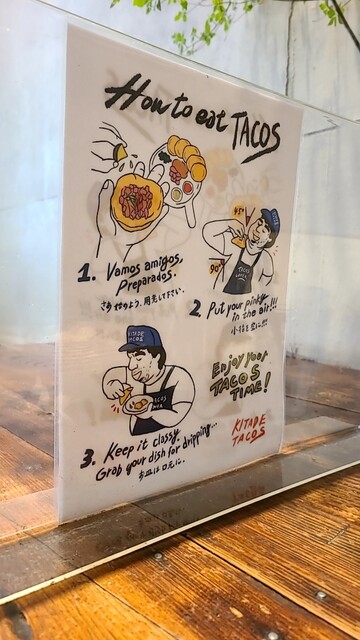 How to eat TACOS
1. Vamos amigos,
Preparados.
さあ 仲間よう、用意して下さい。
45°
90°
2. Put your pinky
in the air!!!
小指を空に!!!
KITADE
TACOS
3. Keep it classy.
Grab your dish for dripping...
お皿は口元に。
Enjoy your
TACOS
TIME!
KITADE
TACOS